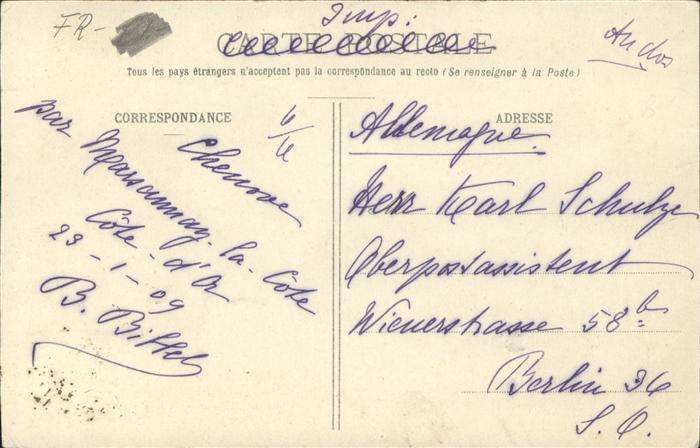 FR-
Imp.
CARTE POSTALE
Tous les pays étrangers n'acceptent pas la correspondance au recto (Se renseigner à la Poste)
CORRESPONDANCE
6/6
Chenove
par Marsannay-la-Côte
Côte-d'Or
23-1-09
B. Bittel
ADRESSE
Allemagne.
Herr Karl Schulze
Oberpostassistent
Wienerstrasse 58 b
Berlin 36
S. O.